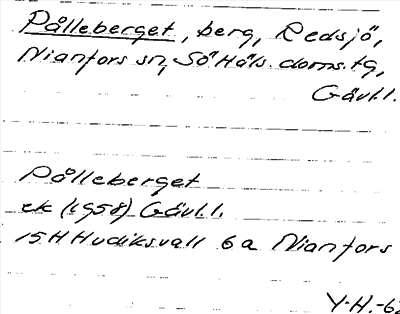 Pålleberget, berg, Redsjö,
Nianfors sn, Sö Häls. doms. tg,
Gävl.l.
Pålleberget
ek (1958) Gävl.l.
15H Hudiksvall 6a Nianfors
Y.H.-62